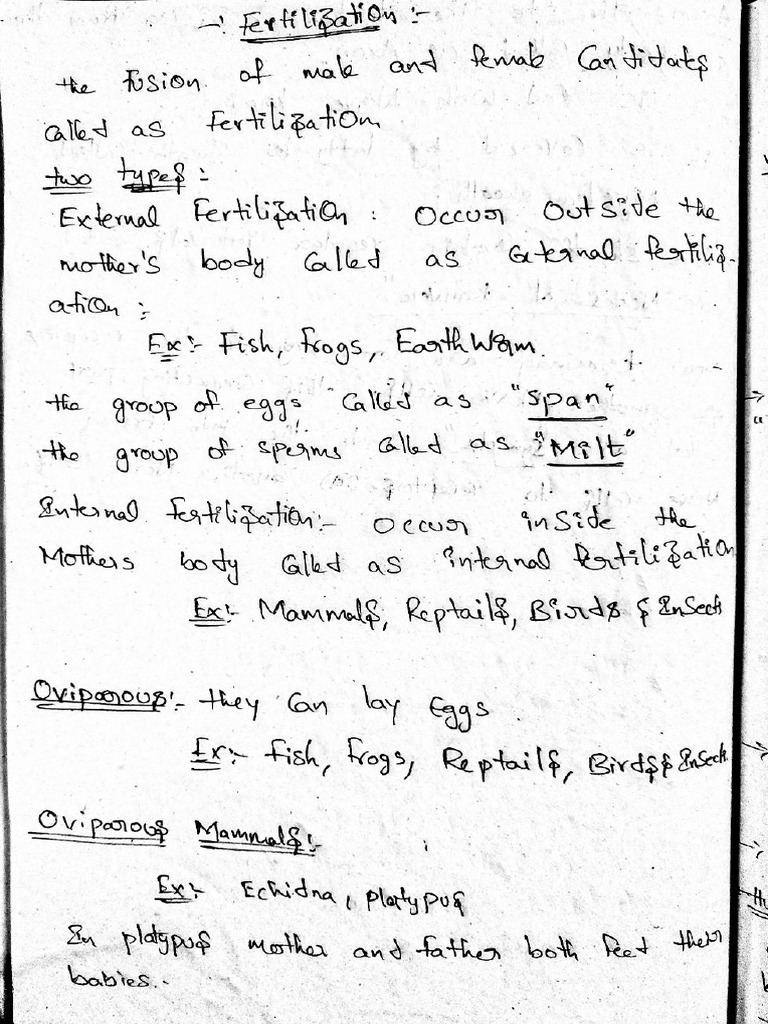 -: Fertilization :-
the fusion of male and female Candidates
called as Fertilization
two types :
External Fertilization : Occur outside the
mother's body Called as External fertiliz-
ation :-
Ex:- Fish, frogs, Earthworm.
the group of eggs Called as "Span"
the group of sperms called as "Milt"
Internal fertilization:- Occur inside the
Mothers body Called as internal fertilization
Ex:- Mammals, Reptails, Birds & Insect
Oviparous:- they Can lay Eggs
Ex:- fish, frogs, Reptails, Birds & Insect
Oviparous Mammals:-
Ex:- Echidna, platypus
In platypus mother and father both feet their
babies..